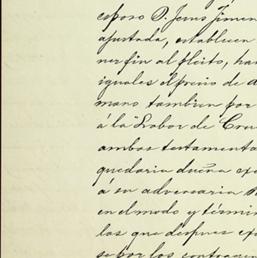 esposo D. Jesus Jimen
ajustada, establecen
ner fin al pleito, ha
iguales el precio de a
mano tambien por
á la "Labor de Cru
ambos testamenta
quedaria dueña ex
á su adversaria
en el modo y térmi
las que despues ex
se por los contraen